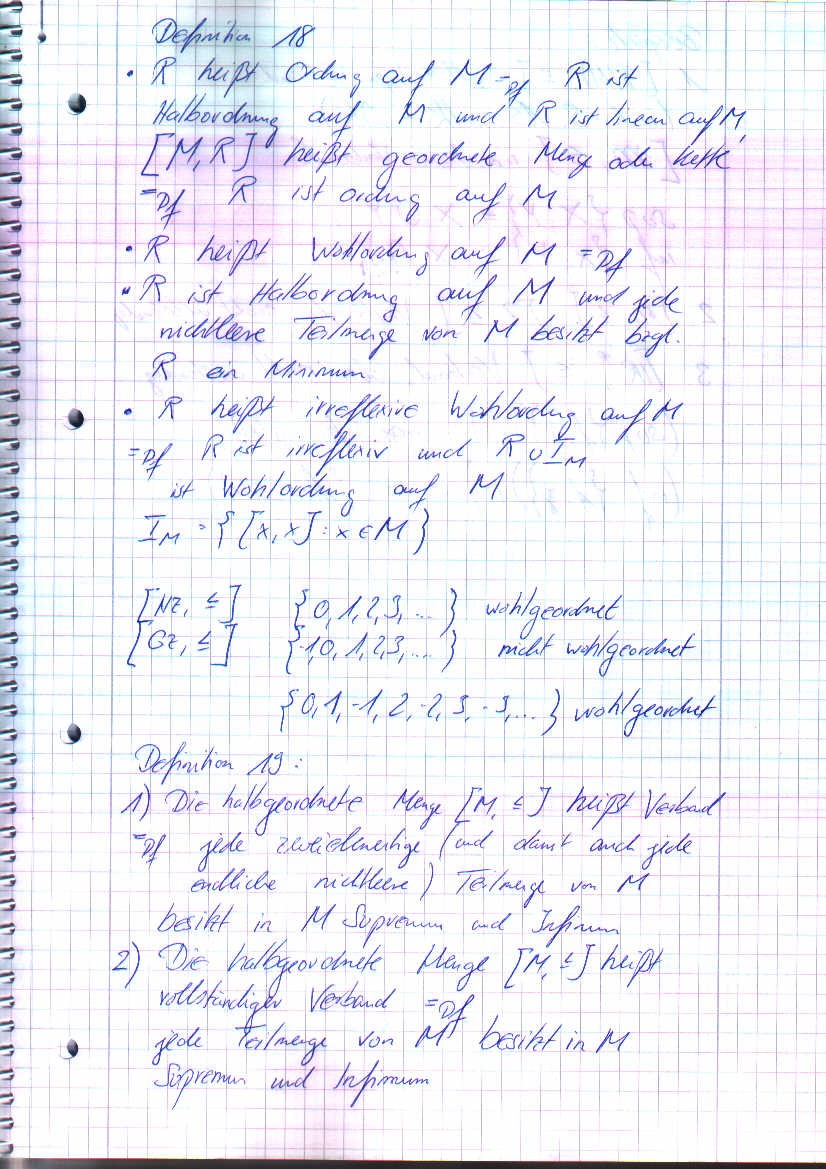 Definition 18
• R heißt Ordng auf M =Df R ist
Halbordnung auf M und R ist linear auf M,
[M, R] heißt geordnete Menge oder Kette
=Df R ist ordng auf M
• R heißt Wohlordng auf M =Df
• R ist Halbordnung auf M und jede
nichtleere Teilmenge von M besitzt bzgl.
R ein Minimum
• R heißt irreflexive Wohlordng auf M
=Df R ist irreflexiv und R ∪ I_M
ist Wohlordnung auf M
I_M = { [x, x] : x ∈ M }
[Nz, ≤] {0, 1, 2, 3, ... } wohlgeordnet
[Gz, ≤] {-1, 0, 1, 2, 3, ... } nicht wohlgeordnet
{0, 1, -1, 2, -2, 3, -3, ... } wohlgeordnet
Definition 19 :
1) Die halbgeordnete Menge [M, ≤] heißt Verband
=Df jede zweielementige (und damit auch jede
endliche nichtleere) Teilmenge von M
besitzt in M Supremum und Infimum
2) Die halbgeordnete Menge [M, ≤] heißt
vollständiger Verband =Df
jede Teilmenge von M besitzt in M
Supremum und Infimum